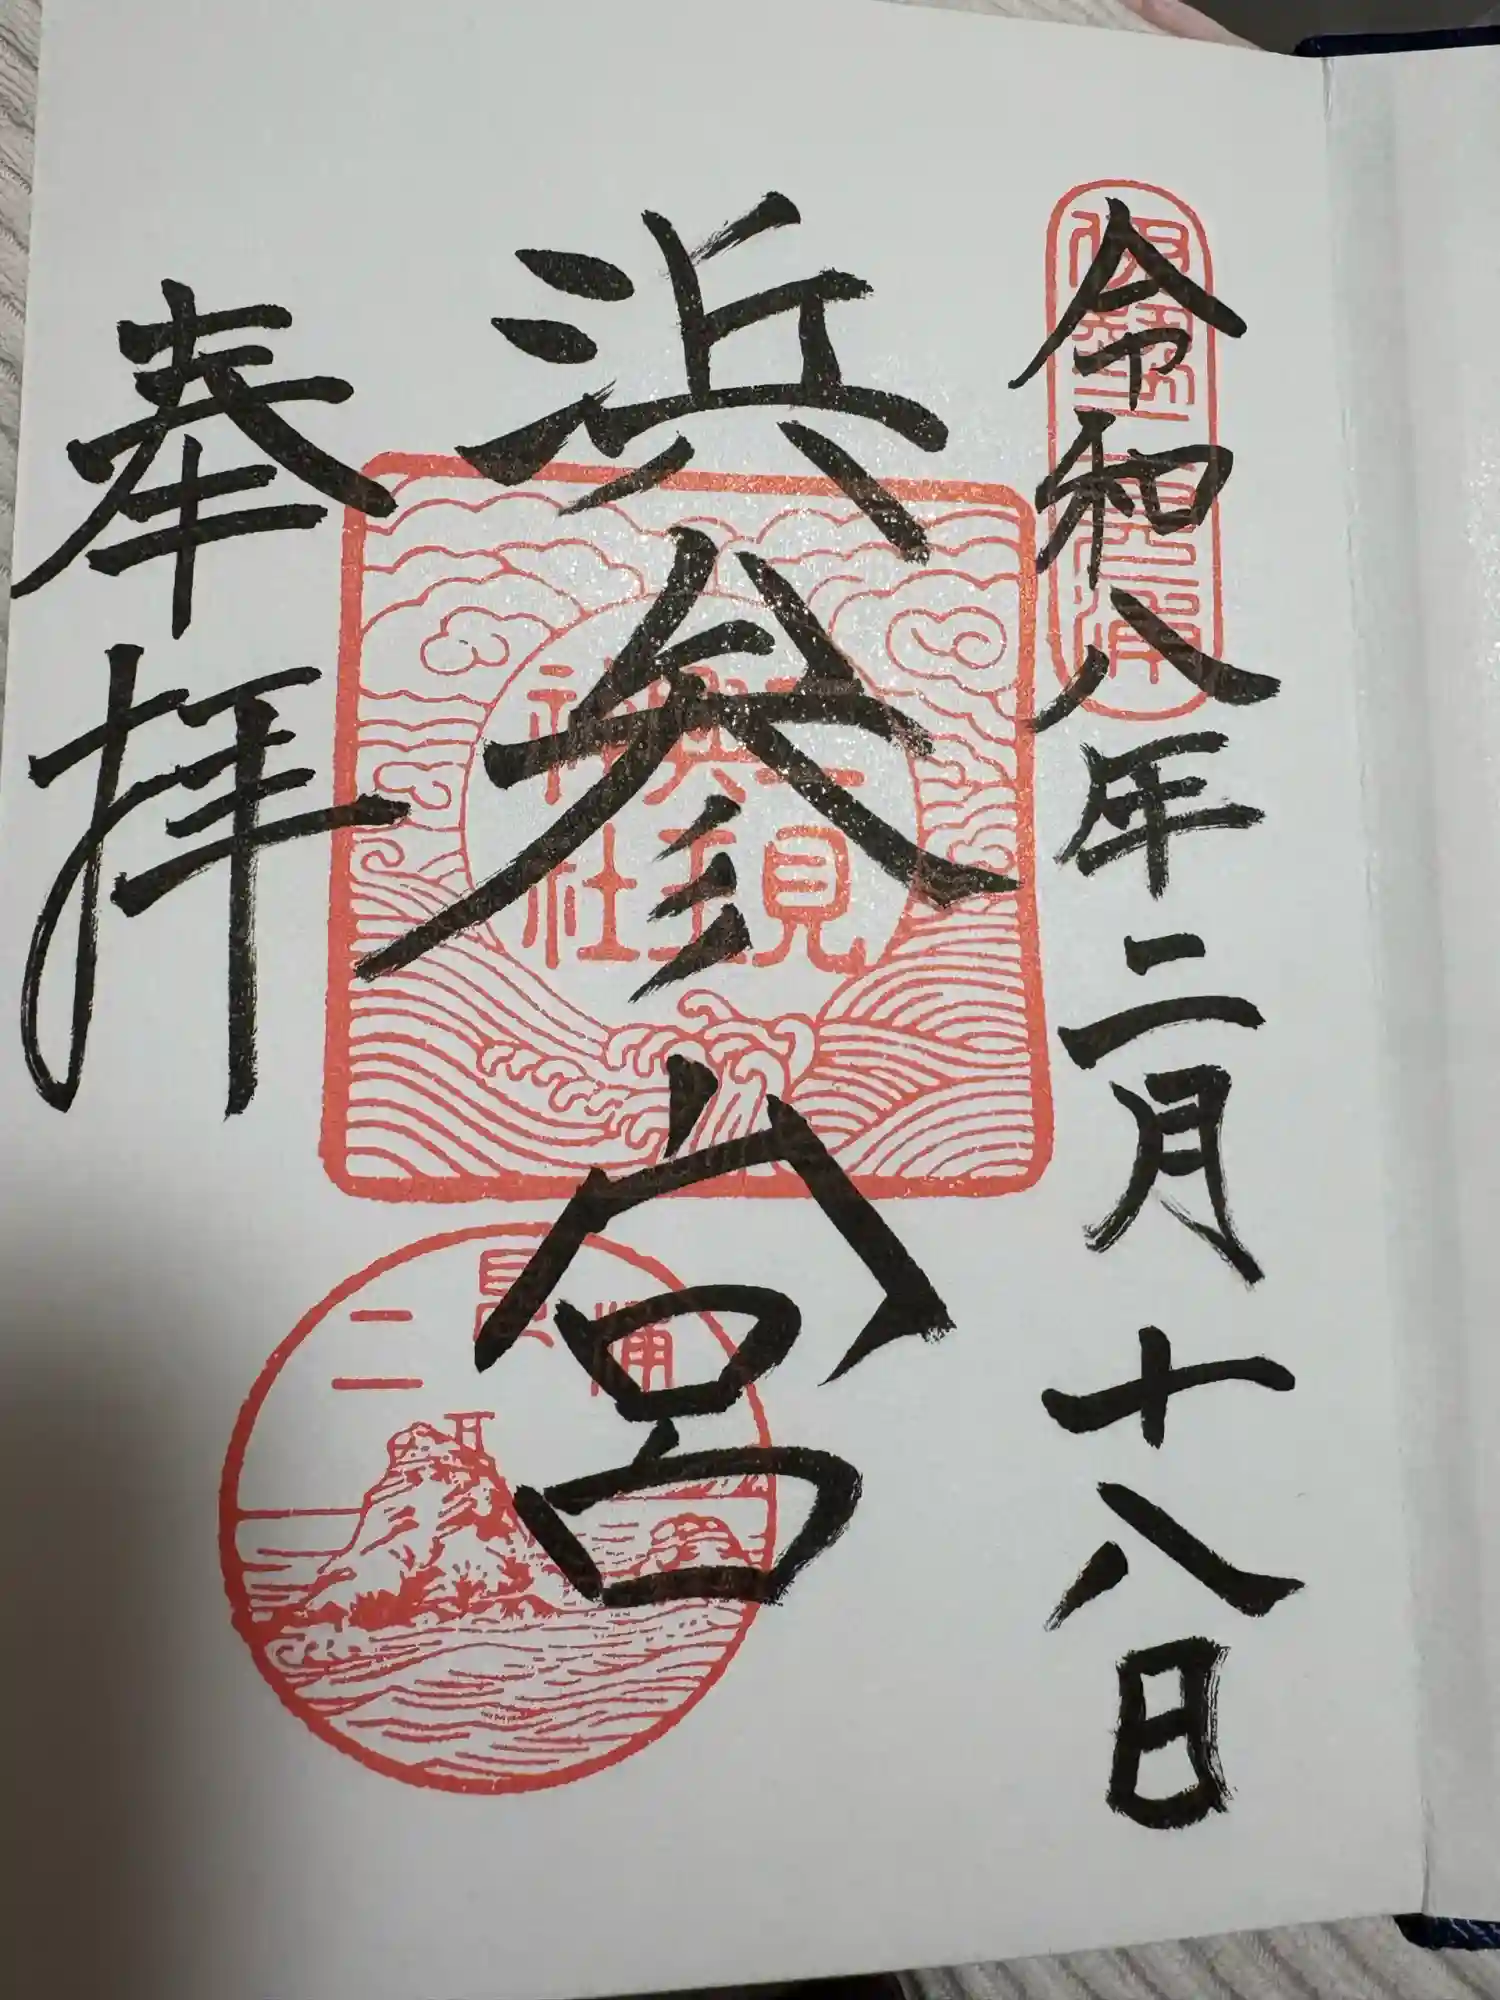 令和八年二月十八日
浜参宮
二見
興玉
神社
奉拝
二見浦